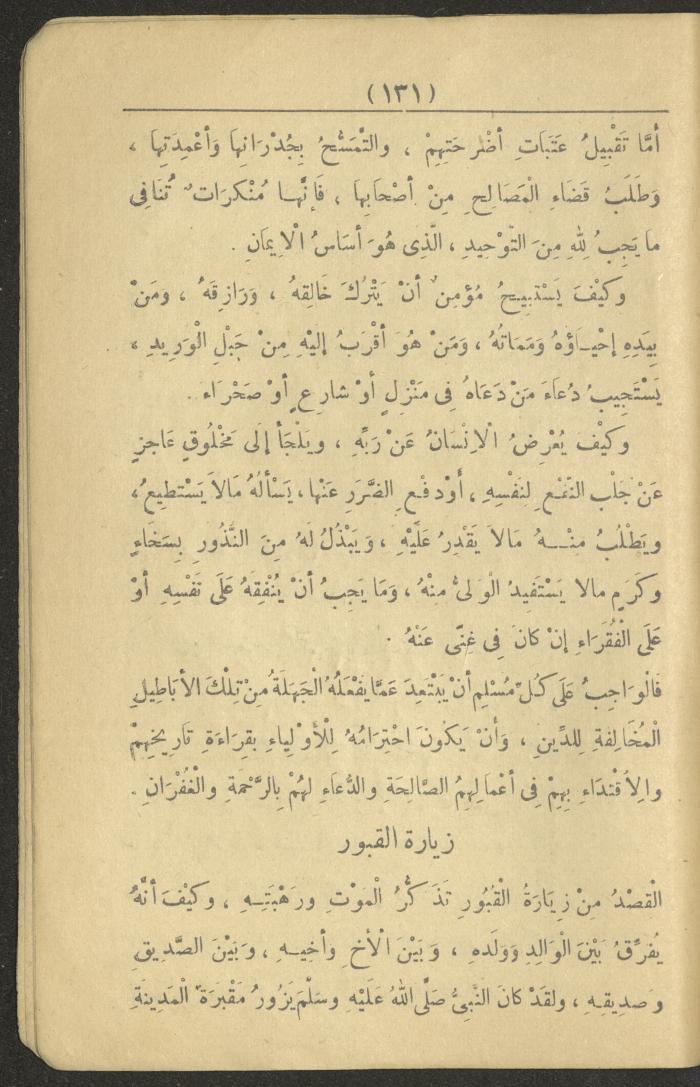 (١٣١)
أمَّا تَقْبِيلُ عَتَبَاتِ أضْرِحَتِهِمْ ، والتَّمَسُّحُ بِجُدْرَانِهَا وَأعْمِدَتِهَا ،
وَطَلَبُ قَضَاءِ الْمَصَالِحِ مِنْ أصْحَابِهَا ، فَإنَّهَا مُنْكَرَاتٌ تُنَافِى
مَا يَجِبُ لِلهِ مِنَ التَّوْحِيدِ ، الَّذِى هُوَ أسَاسُ الْإِيمَانِ .
وَكَيْفَ يَسْتَبِيحُ مُؤْمِنٌ أنْ يَتْرُكَ خَالِقَهُ ، وَرَازِقَهُ ، وَمَنْ
بِيَدِهِ إحْيَاؤُهُ وَمَمَاتُهُ ، وَمَنْ هُوَ أقْرَبُ إلَيْهِ مِنْ حَبْلِ الْوَرِيدِ ،
يَسْتَجِيبُ دُعَاءَ مَنْ دَعَاهُ فِى مَنْزِلٍ أوْ شَارِعٍ أوْ صَحْرَاء .
وَكَيْفَ يُعْرِضُ الْاِنْسَانُ عَنْ رَبِّهِ ، وَيَلْجَأ إلَى مَخْلُوقٍ عَاجِزٍ
عَنْ جَلْبِ النَّفْعِ لِنَفْسِهِ ، أوْ دَفْعِ الضَّرَرِ عَنْهَا ، يَسْألُهُ مَالاَ يَسْتَطِيعُ ،
وَيَطْلُبُ مِنْهُ مَالاَ يَقْدِرُ عَلَيْهِ ، وَيَبْذُلُ لَهُ مِنَ النُّذُورِ بِسَخَاءٍ
وَكَرَمٍ مالا يَسْتَفِيدُ الْوَلىُّ مِنْهُ ، وَمَا يَجِبُ أنْ يُنْفِقَهُ عَلَى نَفْسِهِ أوْ
عَلَى الْفُقَرَاءِ إنْ كَانَ فِى غِنًى عَنْهُ .
فَالْوَاجِبُ عَلَى كُلِّ مُسْلِمٍ أنْ يَبْتَعِدَ عَمَّا يَفْعَلُهُ الْجَهَلَةُ مِنْ تِلْكَ الأبَاطِيلِ
الْمُخَالِفَةِ لِلدِّينِ ، وَأنْ يَكُونَ احْتِرَامُهُ لِلْأَوْلِيَاءِ بِقِرَاءَةِ تَارِيخِهِمْ
وَالِاقْتِدَاءِ بِهِمْ فِى أعْمَالِهِمُ الصَّالِحَةِ وَالدُّعَاءِ لَهُمْ بِالرَّحْمَةِ وَالْغُفْرَانِ .
زيارة القبور
الْقَصْدُ مِنْ زِيَارَةُ الْقُبُورِ تَذَكُّرُ الْمَوْتِ وَرَهْبَتِهِ ، وَكَيْفَ أنَّهُ
يُفَرِّقُ بَيْنَ الْوَالِدِ وَوَلَدِهِ ، وَبَيْنَ الْأخِ وَأخِيهِ ، وَبَيْنَ الصَّدِيقِ
وَصَدِيقِهِ ، وَلَقَدْ كَانَ النَّبِىُّ صَلَّى اللهُ عَلَيْهِ وَسَلَّمَ يَزُورُ مَقْبَرَةَ الْمَدِينَةِ